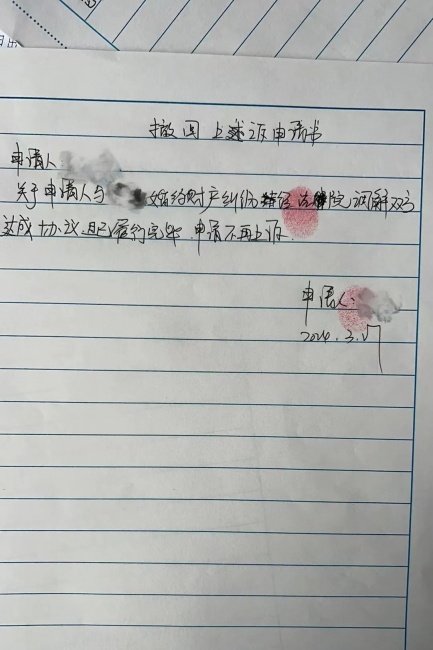 撤回上诉申请书
申请人
关于申请人与 婚约财产纠纷 经法院调解双方
达成协议.且已履行完毕.申请不再上诉.
申请人:
2024.3.17